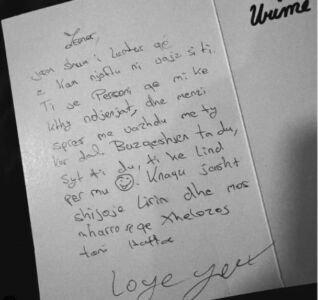 Urime
Zemer,
jam shum i lumtur qe
e kam njoftu ni vajz si ti.
Ti je Personi qe mi ke
kthy ndjenjat, dhe mezi
spres me vazhdu me ty
Kur dal Buzqeshjen ta du,
Syt ti du, ti ke Lind
per mu ☺. Knaqu jasht
shijoje Lirin dhe mos
harro je qe Xhelozos
Love you